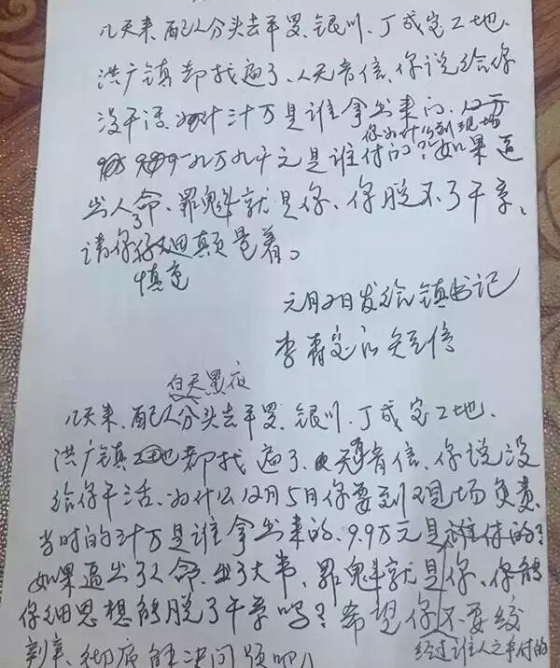 几天来、配人分头去平罗、银川、丁成宝工地、
洪广镇都找遍了、人无音信、你说给你
没干活、为什三十万是谁拿出来的、12万
你为什么到现场
九万九千元是谁付的?如果逼
出人命、罪魁就是你、你脱不了干系、
请你仔细颠量着。
慎重
元月2日发给镇书记
李 短信
白天黑夜
几天来、配人分头去平罗、银川、丁成宝工地、
洪广镇工地都找遍了、无音信、你说没
给你干活、为什么12月5日你要到现场负责、
当时的三十万是谁拿出来的、9.9万元是谁付的?
如果逼出了人命、出了大事、罪魁就是你、你能
仔细思想能脱了干系吗?希望你不要绞
经过谁人之手付的
彻底解决问题吧!